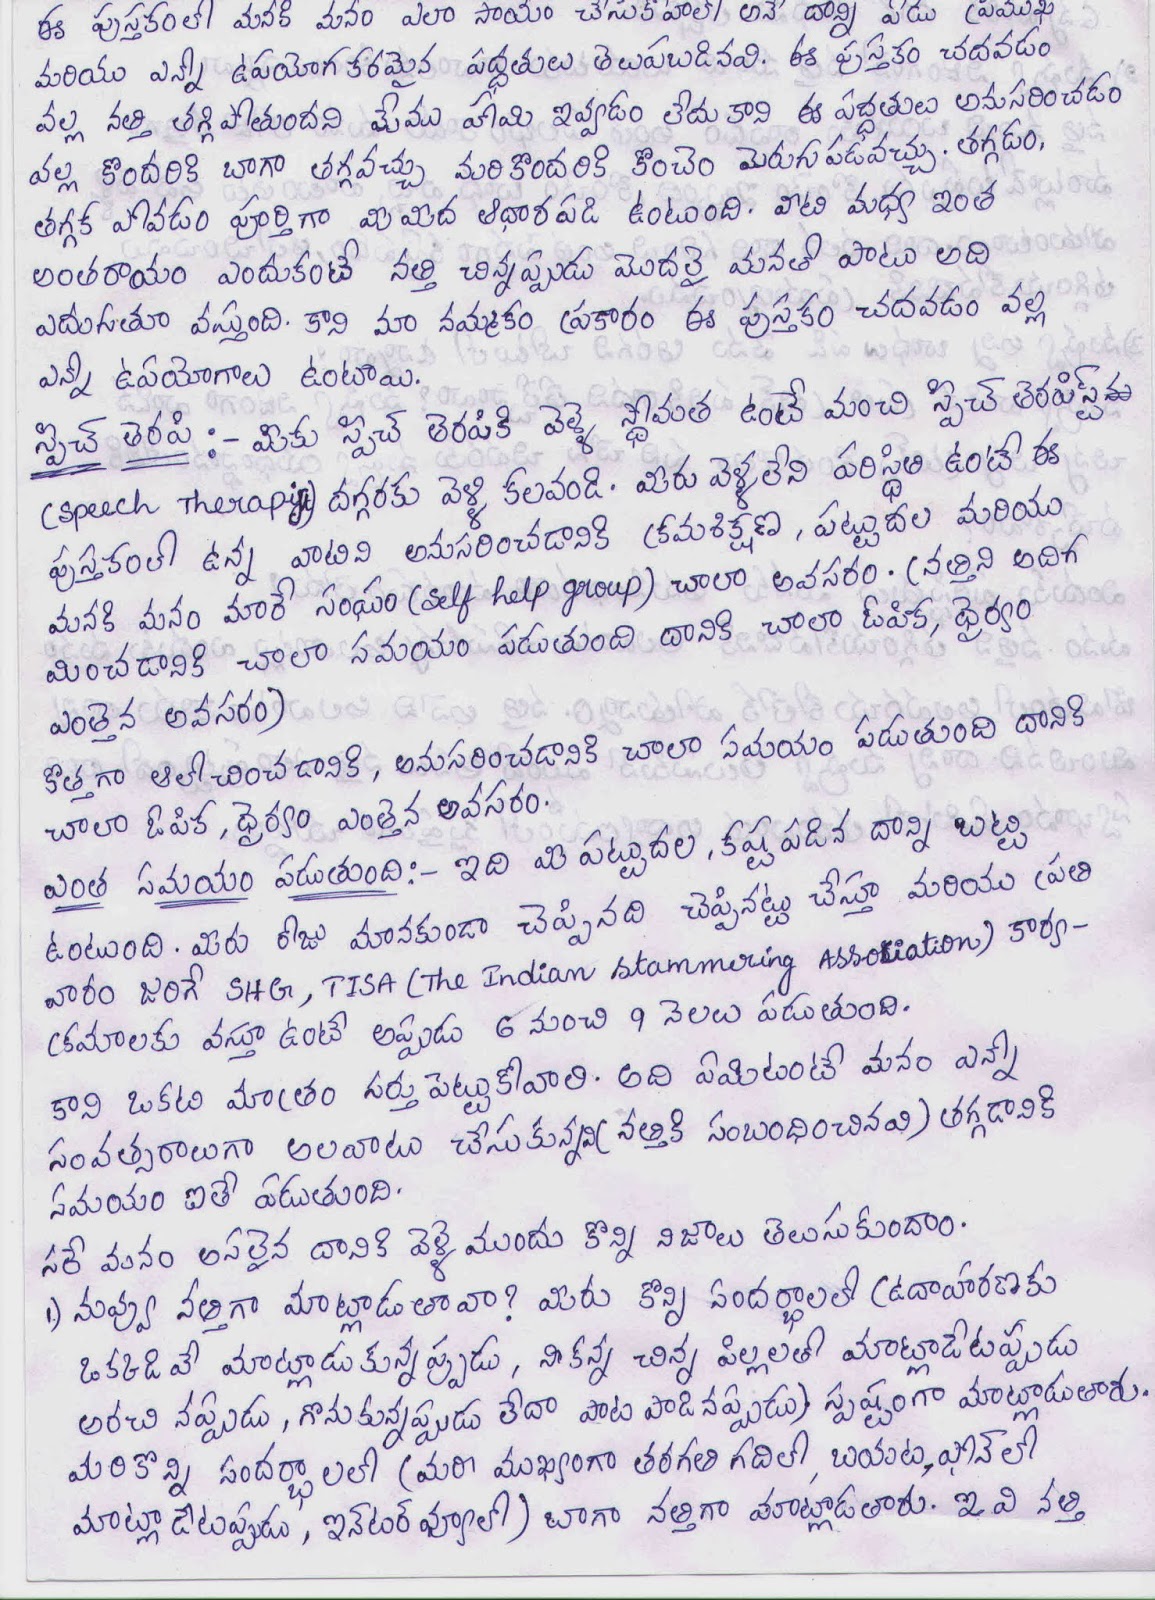 ఈ పుస్తకంలో మనకి మనం ఎలా సాయం చేసుకోవాలో అనే దాన్ని ప్రముఖ
మరియు ఎన్నో ఉపయోగకరమైన పద్ధతులు తెలుపబడినవి. ఈ పుస్తకం చదవడం
వల్ల నత్తి తగ్గిపోతుందని మేము హామి ఇవ్వడం లేదు కాని ఈ పద్ధతులు అనుసరించడం
వల్ల కొందరికి బాగా తగ్గవచ్చు మరికొందరికి కొంచెం మెరుగు పడవచ్చు. తగ్గడం,
తగ్గక పోవడం పూర్తిగా మీమీద ఆధారపడి ఉంటుంది. వీటి మధ్య ఇంత
అంతరాయం ఎందుకంటే నత్తి చిన్నప్పుడు మొదలై మనతో పాటు అది
ఎదుగుతూ వస్తుంది. కాని మా నమ్మకం ప్రకారం ఈ పుస్తకం చదవడం వల్ల
ఎన్నో ఉపయోగాలు ఉంటాయి.
స్పీచ్ తెరపి :- మీకు స్పీచ్ తెరపికి వెళ్ళే స్థోమత ఉంటే మంచి స్పీచ్ తెరపిస్ట్
(speech Therapist) దగ్గరకు వెళ్ళి కలవండి. మీరు వెళ్ళలేని పరిస్థితి ఉంటే ఈ
పుస్తకంలో ఉన్న వాటిని అనుసరించడానికి క్రమశిక్షణ, పట్టుదల మరియు
మనకి మనం మారే సంఘం (self help group) చాలా అవసరం. (నత్తిని అదిగ
మించడానికి చాలా సమయం పడుతుంది దానికి చాలా ఓపిక, ధైర్యం
ఎంతైన అవసరం)
కొత్తగా ఆలోచించడానికి, అనుసరించడానికి చాలా సమయం పడుతుంది దానికి
చాలా ఓపిక, ధైర్యం ఎంతైన అవసరం.
ఎంత సమయం పడుతుంది:- ఇది మీ పట్టుదల, కష్టపడిన దాన్ని బట్టి
ఉంటుంది. మీరు రోజు మానకుండా చెప్పినది చెప్పినట్టు చేస్తూ మరియు ప్రతి
వారం జరిగే SHG, TISA (The Indian Stammering Association) కార్య-
క్రమాలకు వస్తూ ఉంటే అప్పుడు 6 నుంచి 9 నెలలు పడుతుంది.
కాని ఒకటి మాత్రం గుర్తు పెట్టుకోవాలి. అది ఏమిటంటే మనం ఎన్నో
సంవత్సరాలుగా అలవాటు చేసుకున్నవి (నత్తికి సంబంధించినవి) తగ్గడానికి
సమయం ఐతే పడుతుంది.
సరే మనం అసలైన దానికి వెళ్ళే ముందు కొన్ని నిజాలు తెలుసుకుందాం.
1.) నువ్వు నత్తిగా మాట్లాడుతావా? మీరు కొన్ని సందర్భాలలో (ఉదాహరణకు
ఒక్కడివే మాట్లాడుకున్నప్పుడు, నీకన్న చిన్న పిల్లలతో మాట్లాడేటప్పుడు
అరచి నప్పుడు, గొనుకున్నప్పుడు లేదా పాట పాడినప్పుడు) స్పష్టంగా మాట్లాడుతారు.
మరికొన్ని సందర్భాలలో (మరీ ముఖ్యంగా తరగతి గదిలో, బయట, ఫోన్‌లో
మాట్లాడేటప్పుడు, ఇన్‌టర్‌వ్యూలో) బాగా నత్తిగా మాట్లాడతారు. ఇవి నత్తి